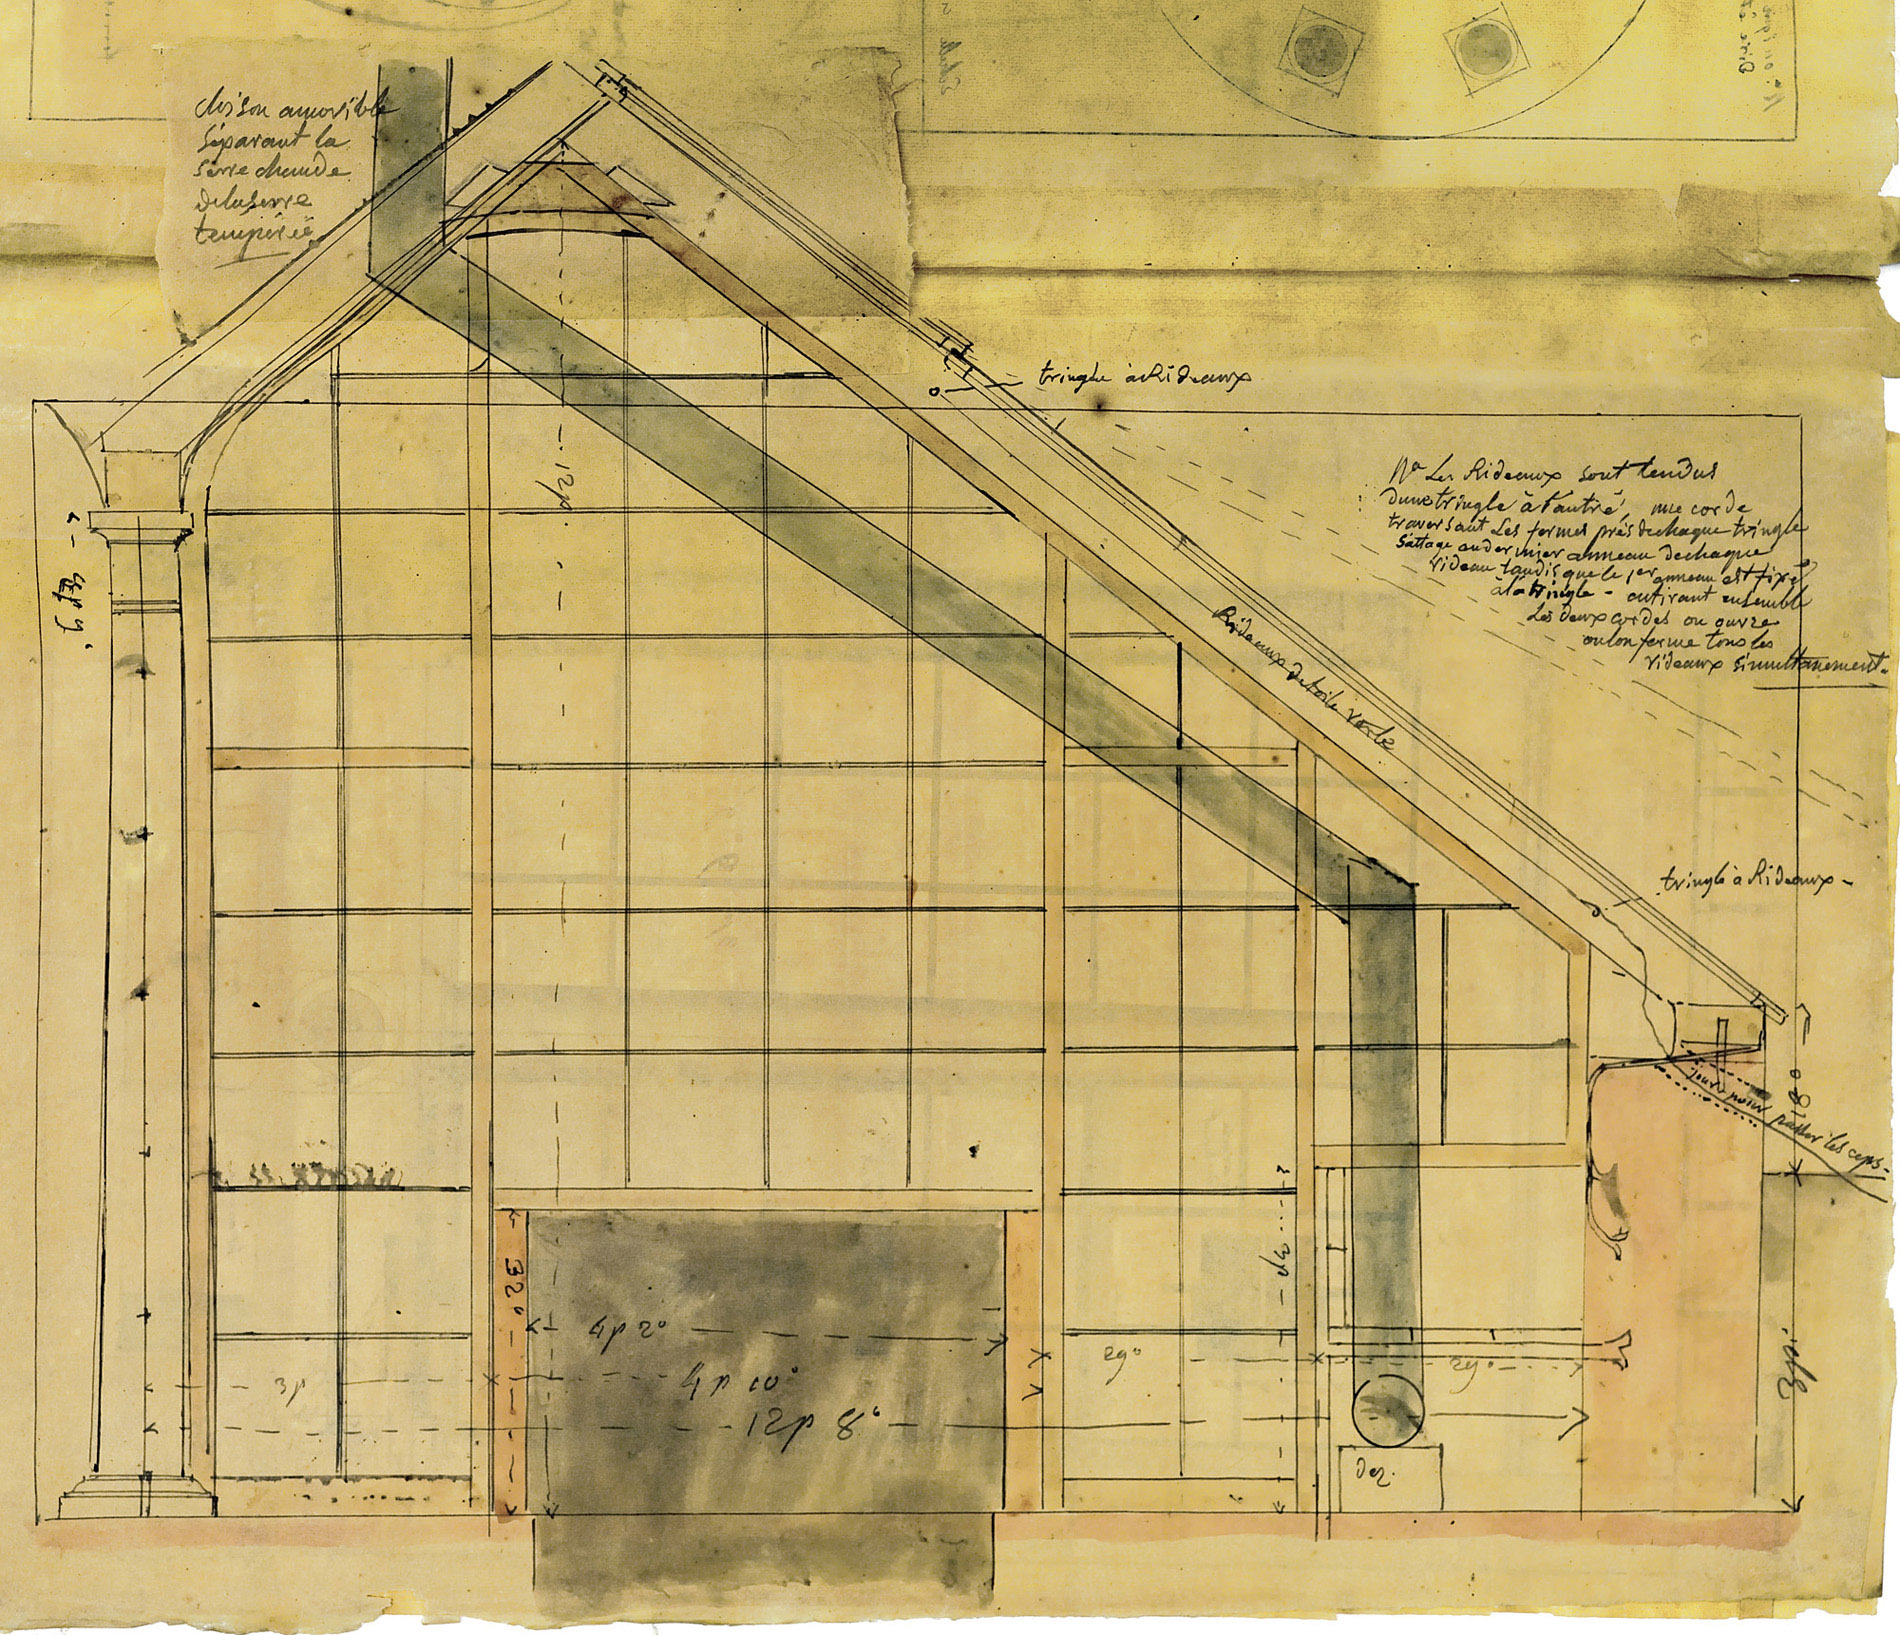 cloison amovible
séparant la
serre chaude
de la serre
tempérée
tringle à Rideaux
Na Les Rideaux sont tendus
dune tringle à l'autre, une corde
traversant les fermes près de chaque tringle
s'attage au dernier anneau de chaque
rideau tandis que le 1er anneau est fixé
à la tringle - en tirant ensemble
Les deux cordes on ouvre
ou lon ferme tous les
rideaux simultanement.
Rideaux de toile verte
tringle à Rideaux -
jours pour passer les ceps -
12p.
9p.
18°
3pi.
3p
32°
4p 2°
4p 10°
12p 8°
3p
29°
29°
dez.